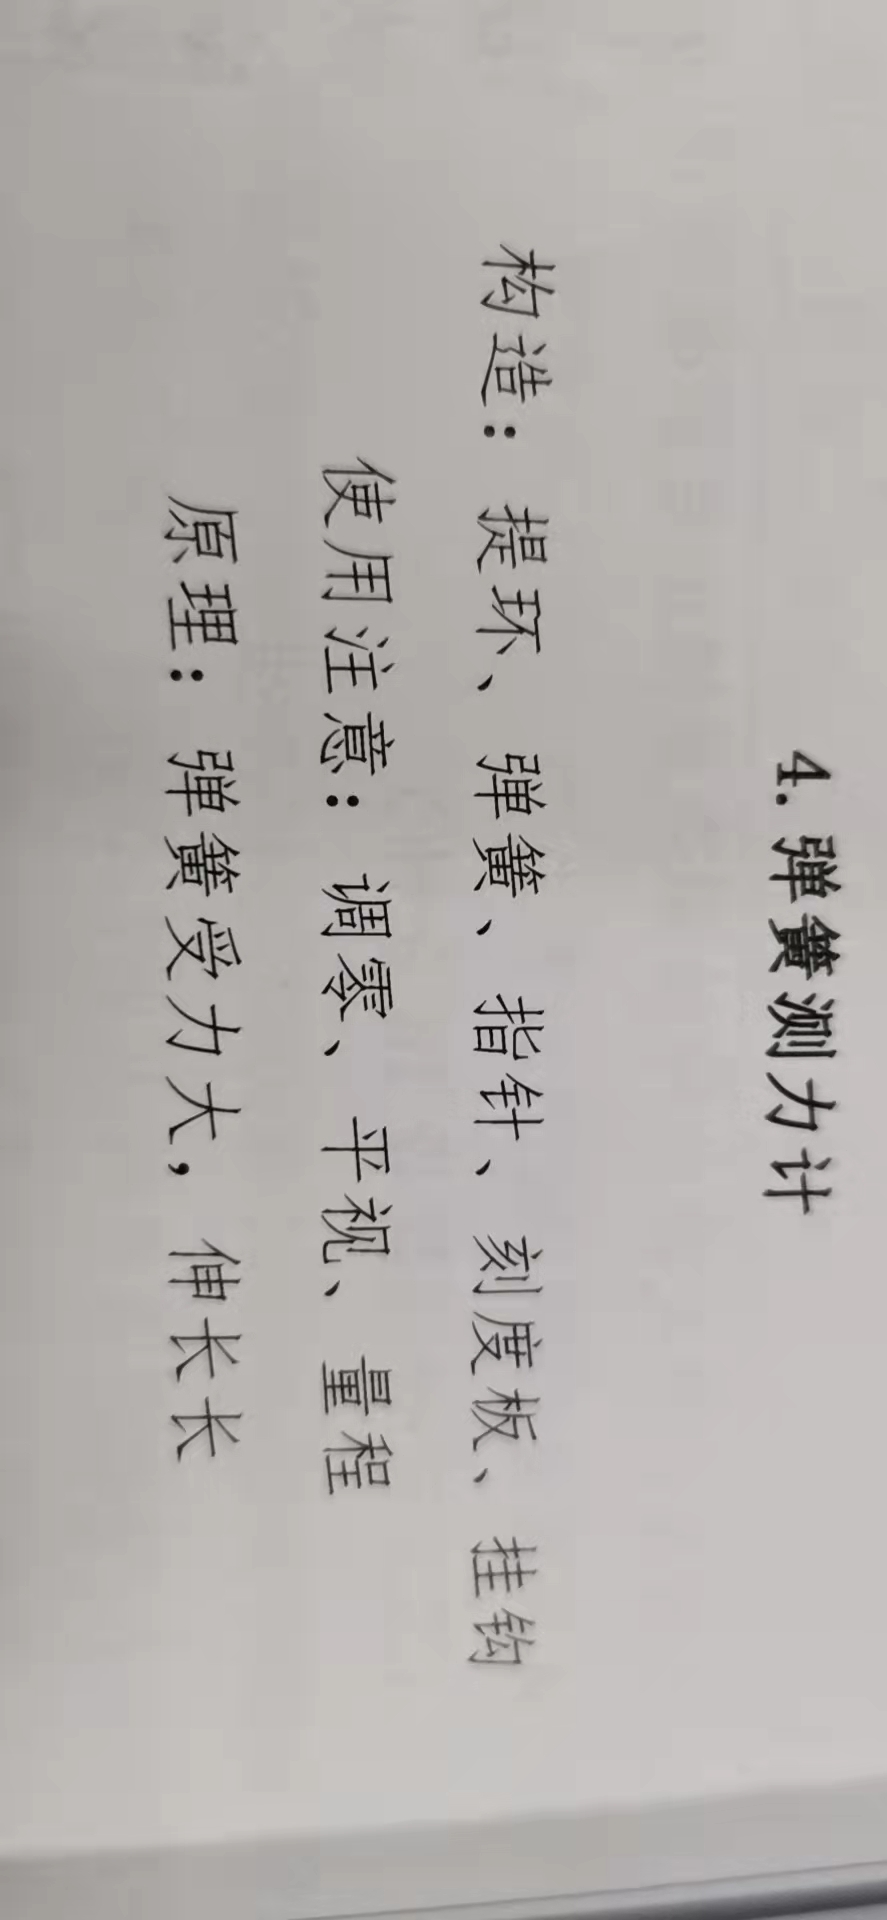 4. 弹簧测力计
构造：提环、弹簧、指针、刻度板、挂钩
使用注意：调零、平视、量程
原理：弹簧受力大，伸长长